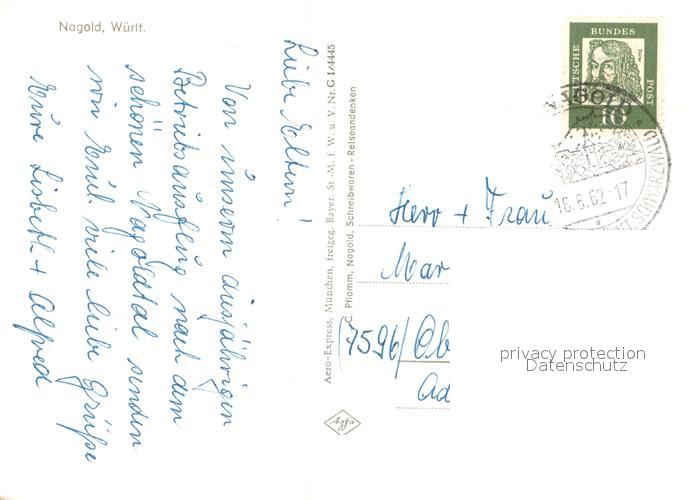 Nagold, Württ.
Liebe Eltern!
Von unserm diesjährigen
Betriebsausflug nach dem
schönen Nagoldtal senden
wir Euch viele liebe Grüße
Eure Lisbeth + Alfred
Aero-Express, München, freigeg. Bayer. St.-M. f. W. u. V. Nr. G 1/4445
C. Pflomm, Nagold, Schreibwaren - Reiseandenken
Agfa
DEUTSCHE
BUNDES
POST
Dürer
10
NAGOLD
16.6.62-17
SCHWARZWALD
Herr + Frau
Mar
(7596) Ob
Ad
privacy protection
Datenschutz